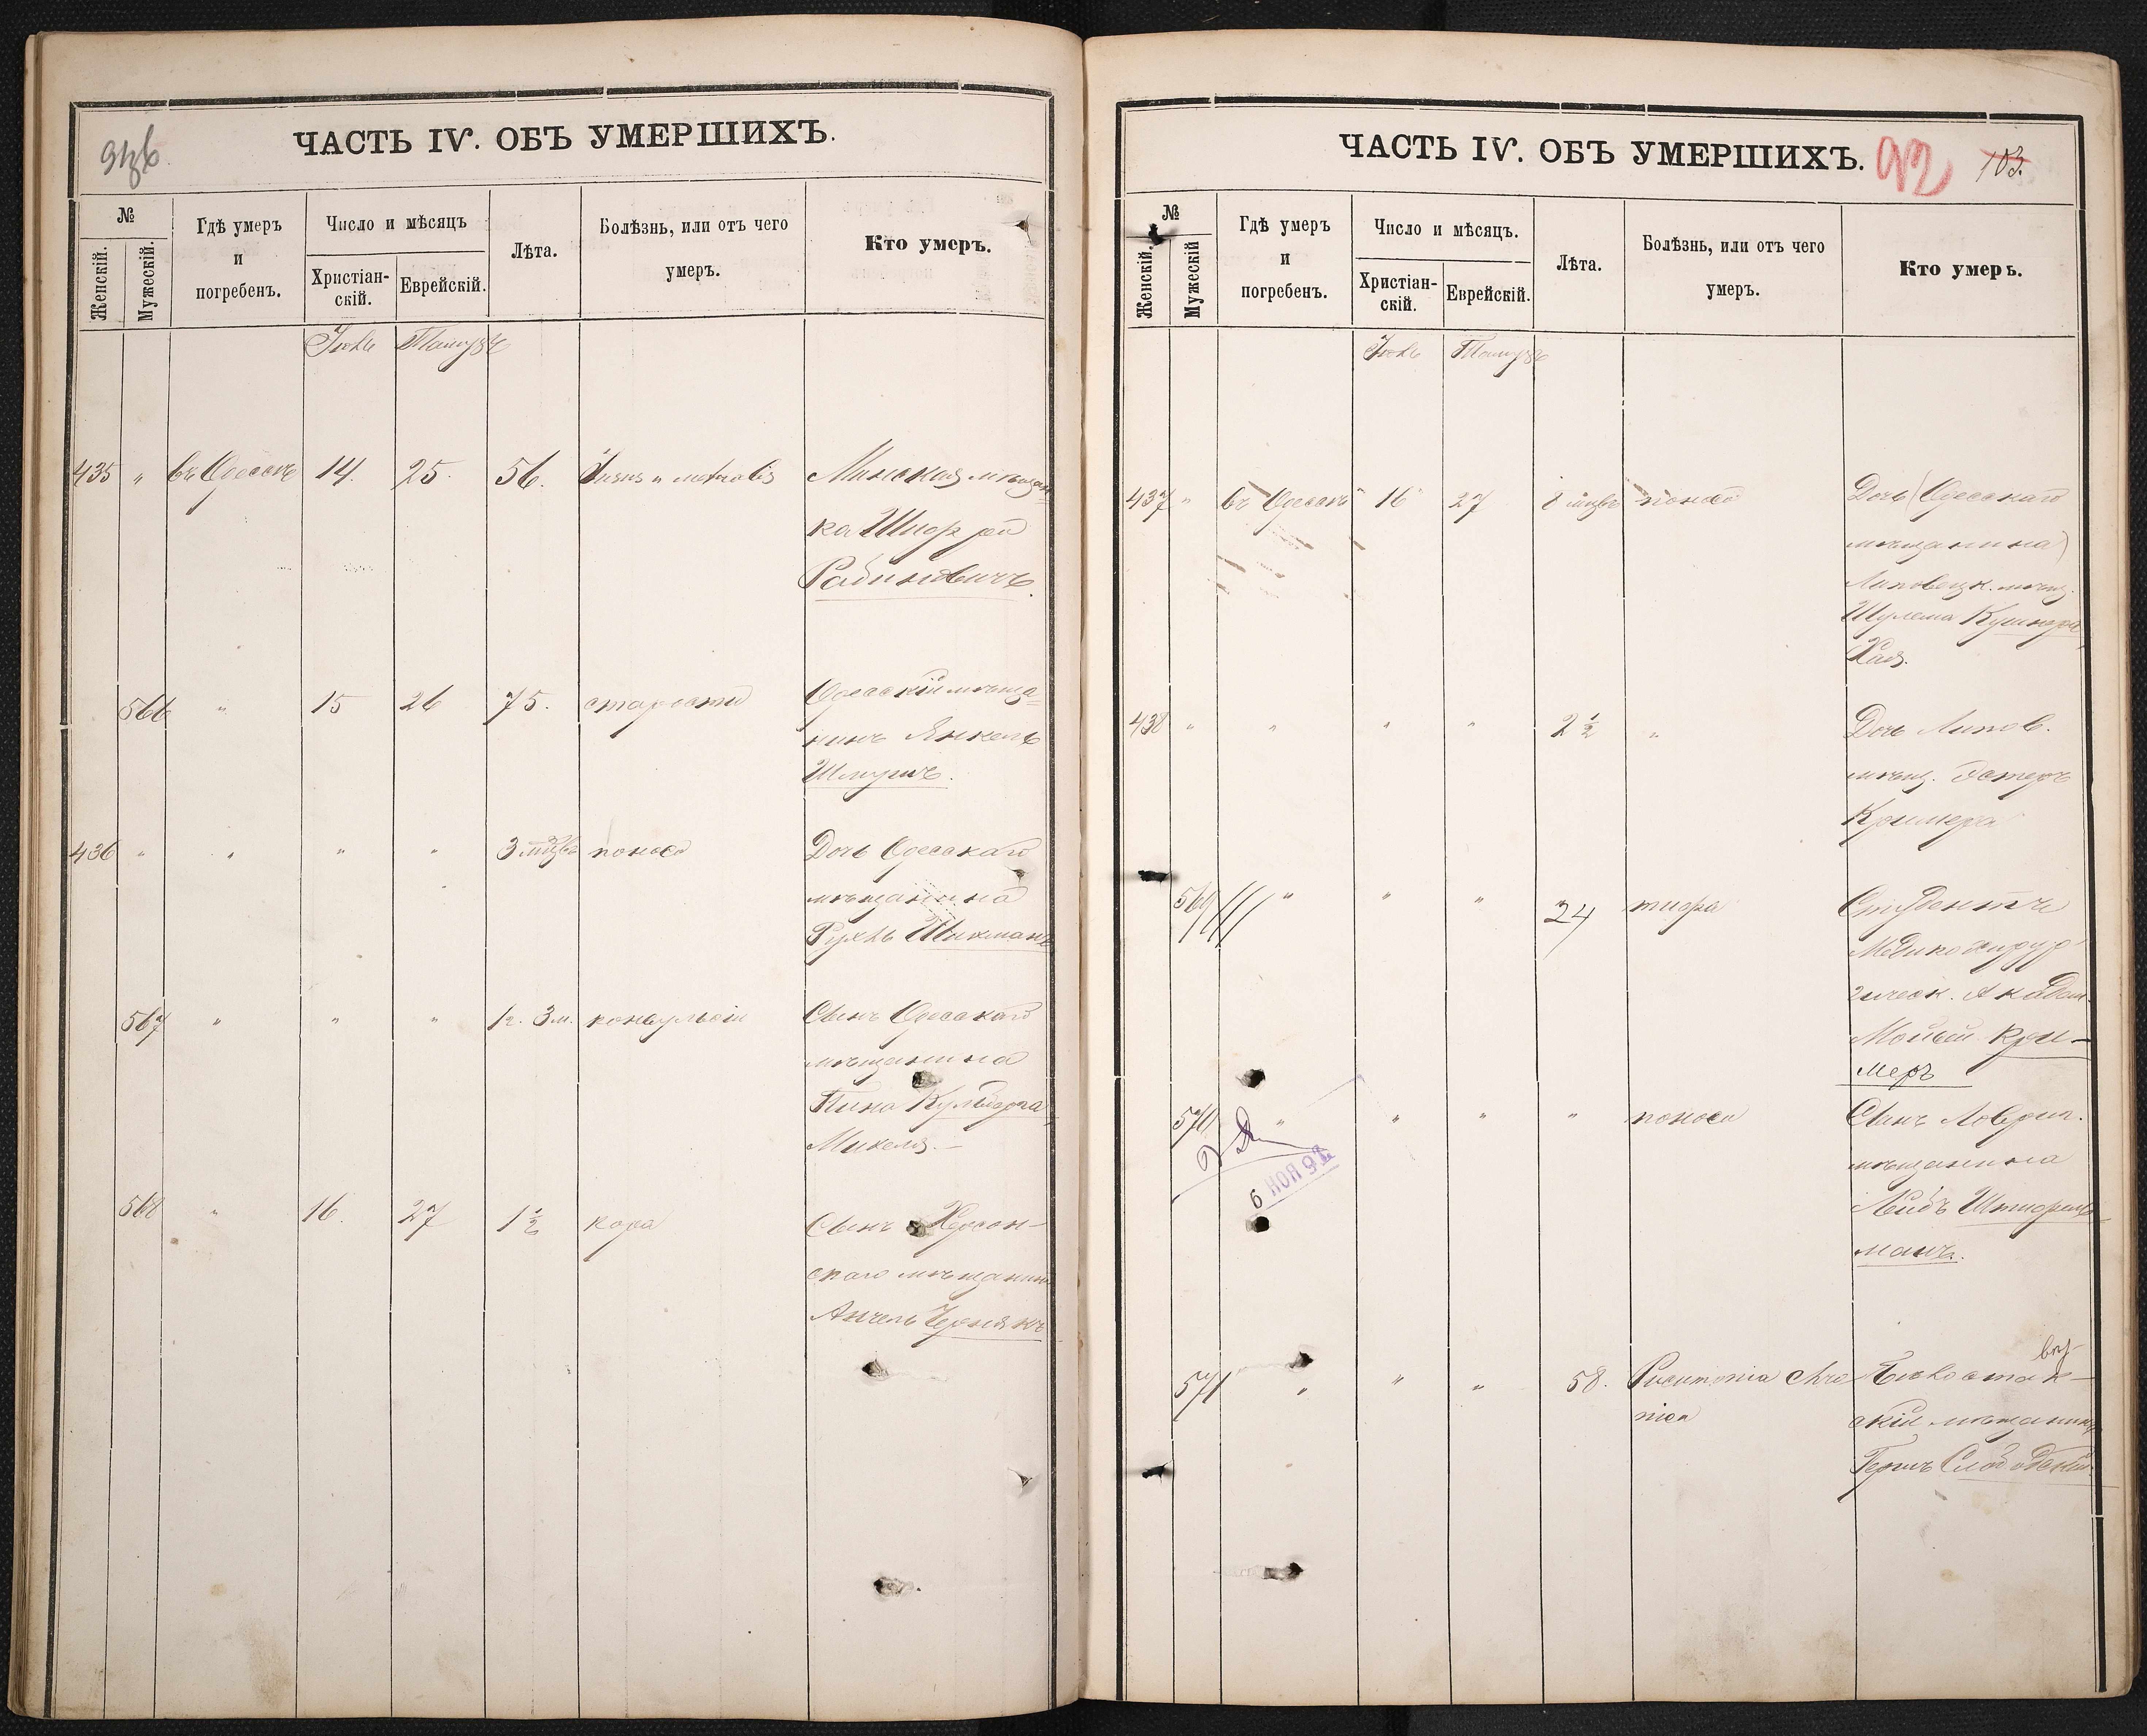 ЧАСТЬ IV. ОБЪ УМЕРШИХЪ.
№
Женскій.
Мужескій.
Гдѣ умеръ
и
погребенъ.
Число и мѣсяцъ
Христіан-
скій.
Еврейскій.
Лѣта.
Болѣзнь, или отъ чего
умеръ.
Кто умеръ.
Іюль Тамузъ
435 " въ Одессѣ 14. 25. 56. Минская мѣщан=
ка
Рабиновичъ.
566 " 15 26 75. старости Одесскій мѣща=
нинъ Янкель
Шмушъ.
436 " " " " 3 мѣсяц. поноса Дочь Одесскаго
мѣщанина
Рухль Шикманъ
567 " " " 1г. 3м. конвульсіи Сынъ Одесскаго
мѣщанина
Пина
Микель. —
568 " 16. 27 1 1/2 кора Сынъ Херсон-
скаго мѣщанина
Анчель Чернякъ
ЧАСТЬ IV. ОБЪ УМЕРШИХЪ.
92 103.
№
Женскій.
Мужескій
Гдѣ умеръ
и
погребенъ.
Число и мѣсяцъ.
Христіан-
скій.
Еврейскій.
Лѣта.
Болѣзнь, или отъ чего
умеръ.
Кто умеръ.
Іюль Тамузъ
437 " въ Одессѣ 16 27 8 мѣсяц. поноса Дочь (Одесскаго
мѣщанина)
Липовецк. мѣщ.
Шулема Кушнера,
Хая.
438 " " " " 2 1/2 " Дочь Липов.
мѣщ. Эстеръ
Кримера
569 " " " 24 тифа Студентъ
Медикохирур-
гическ. Академ.
Мойсей Кри-
меръ
570 " " " " поноса Сынъ
мѣщанина
Лейбъ
манъ.
6 НОЯ 92
571 " " " 58. Pneumonia chro
nica Бѣлосток-
скій мѣщанинъ
Гершъ Слободскій